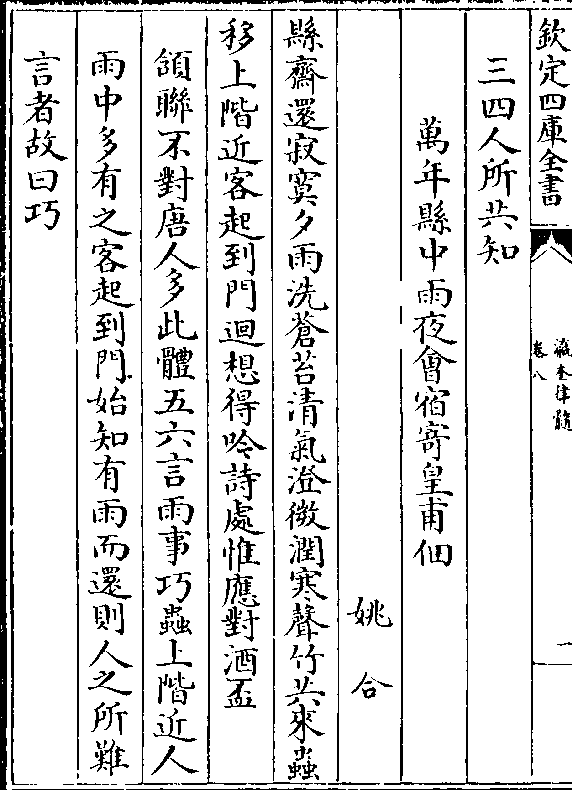 欽定四庫全書
瀛奎律髓
卷八
一
三四人所共知
萬年縣中雨夜會宿寄皇甫佃
姚合
縣齋還寂寞夕雨洗蒼苔清氣澄微潤寒聲竹共來蟲
移上階近客起到門迴想得吟詩處惟應對酒盃
頷聯不對唐人多此體五六言雨事巧蟲上階近人
雨中多有之客起到門始知有雨而還則人之所難
言者故曰巧